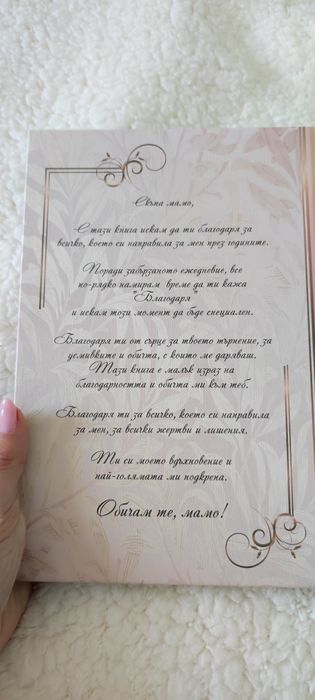 Скъпа мамо,
С тази книга искам да ти благодаря за
всичко, което си направила за мен през годините.
Поради забързаното ежедневие, все
по-рядко намирам време да ти кажа
"Благодаря"
и искам този момент да бъде специален.
Благодаря ти от сърце за твоето търпение, за
усмивките и обичта, с които ме даряваш.
Тази книга е малък израз на
благодарността и обичта ми към теб.
Благодаря ти за всичко, което си направила
за мен, за всички жертви и лишения.
Ти си моето вдъхновение и
най-голямата ми подкрепа.
Обичам те, мамо!